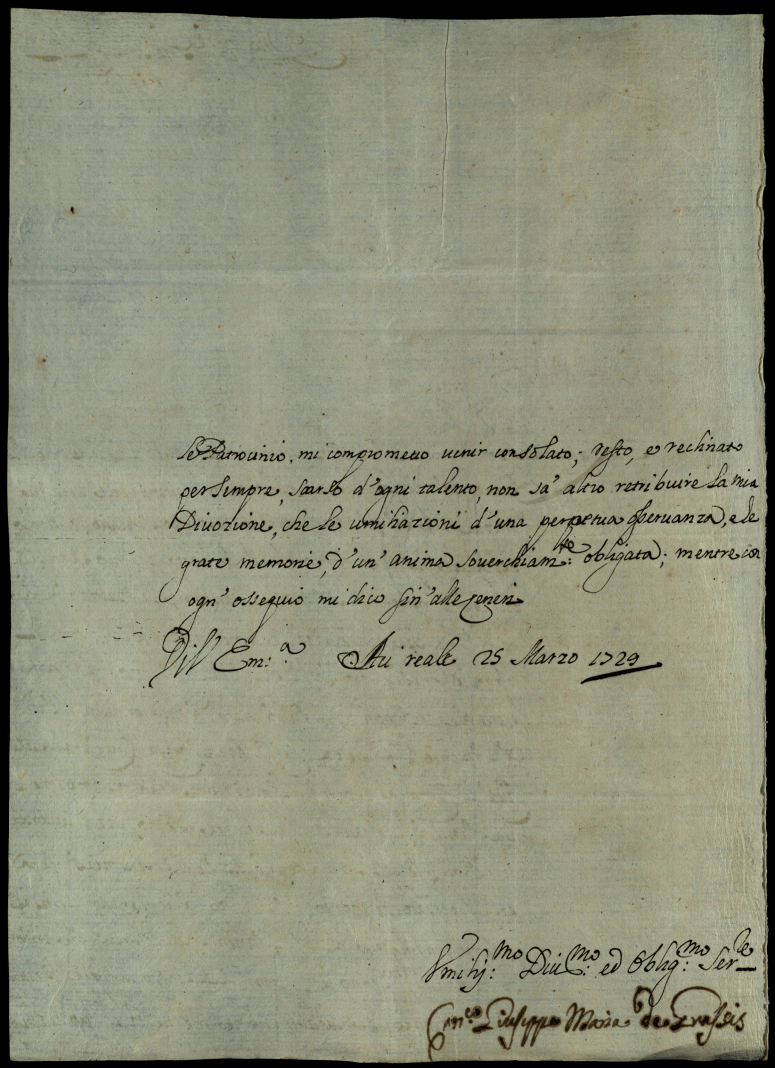 le Patrocinio, mi comprometto venir consolato; resto, e reclinato
per sempre, scarso d'ogni talento, non sà altro retribuire la mia
Divozione, che le umiliazioni d'una perpetua osservanza, e le
grate memorie, d'un' anima soverchiam:te obligata; mentre con
ogn' ossequio mi dico sin' alle ceneri
Di V Em:a reale 25 Marzo 1729
Umilis:mo Divo:mo ed Oblig:mo Ser:re
Can:co Giuseppe Maria de Grassis